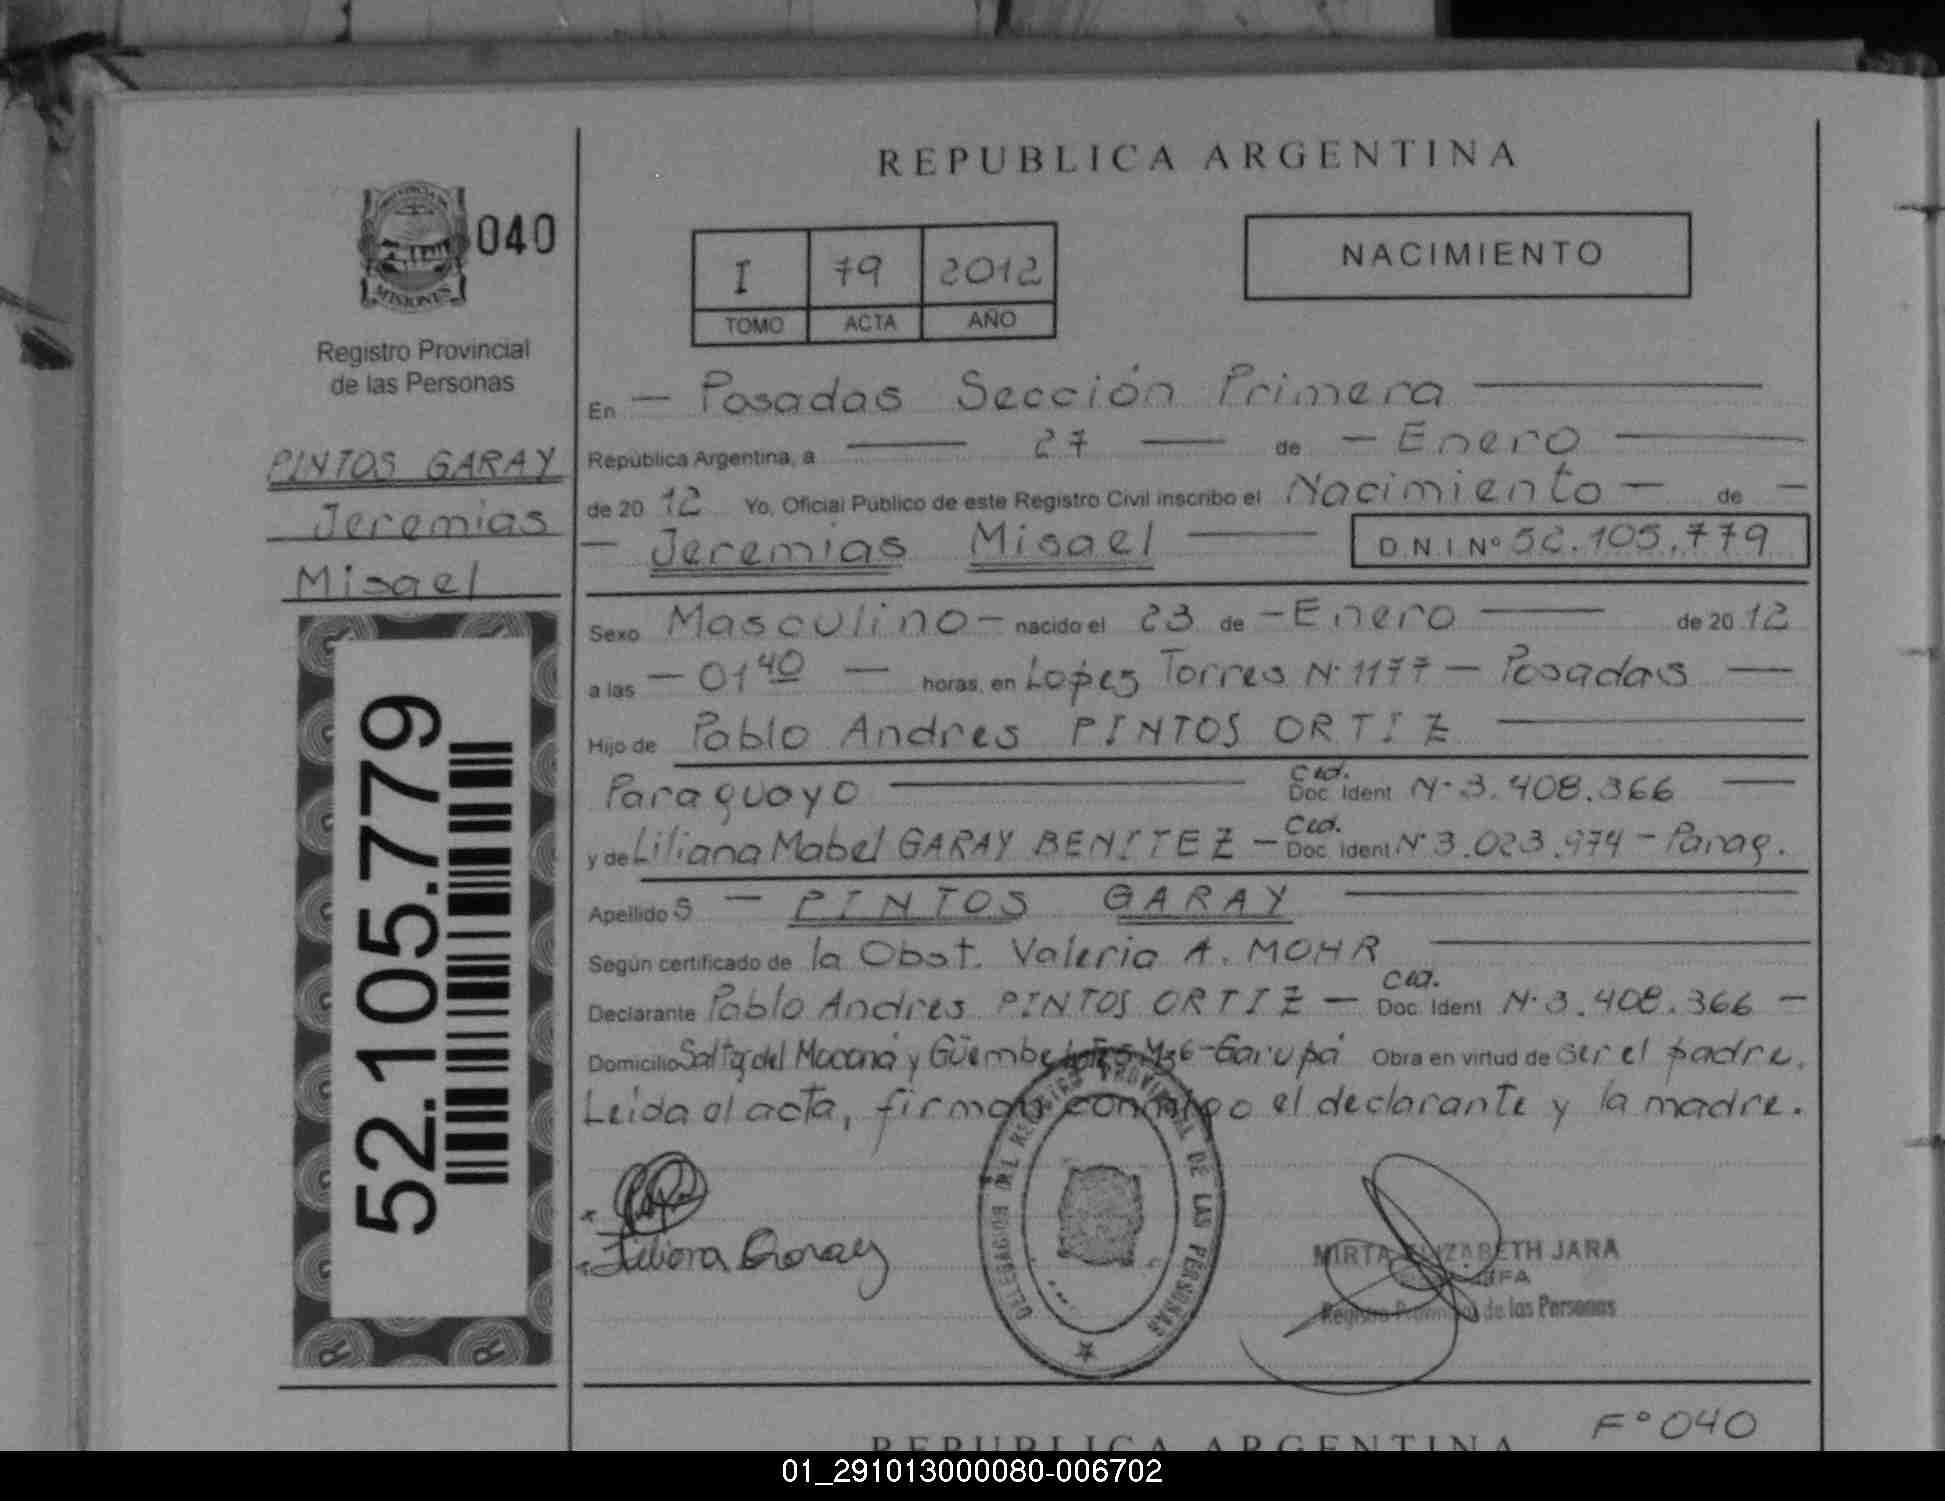 REPUBLICA ARGENTINA
PROVINCIA DE
MISIONES
040
Registro Provincial
de las Personas
PINTOS GARAY
Jeremias
Misael
52.105.779
I 79 2012
TOMO ACTA AÑO
NACIMIENTO
En — Posadas Sección Primera —
República Argentina, a — 27 — de — Enero —
de 20 12 Yo, Oficial Público de este Registro Civil inscribo el Nacimiento — de —
— Jeremias Misael — D N I Nº 52.105.779
Sexo Masculino — nacido el 23 de — Enero — de 20 12
a las — 01 40 — horas, en Lopes Torres Nº 1177 — Posadas —
Hijo de Pablo Andres PINTOS ORTIZ —
Paraguayo — Ced. Doc. Ident Nº 3.408.366 —
y de Liliana Mabel GARAY BENITEZ — Ced. Doc. Ident Nº 3.023.974 — Parag.
Apellido s — PINTOS GARAY —
Según certificado de la Obst. Valeria A. MOHR —
Declarante Pablo Andres PINTOS ORTIZ — Ced. Doc. Ident Nº 3.408.366 —
Domicilio Saltos del Mocona y Güembe Garupá Obra en virtud de ser el padre.
Leida el acta, firman conmigo el declarante y la madre.
Liliana Garay
DELEGACION DEL REGISTRO PROVINCIAL DE LAS PERSONAS
MIRTA ELIZABETH JARA
JEFA
Registro Provincial de las Personas
Fº 040
REPUBLICA ARGENTINA
01_291013000080-006702